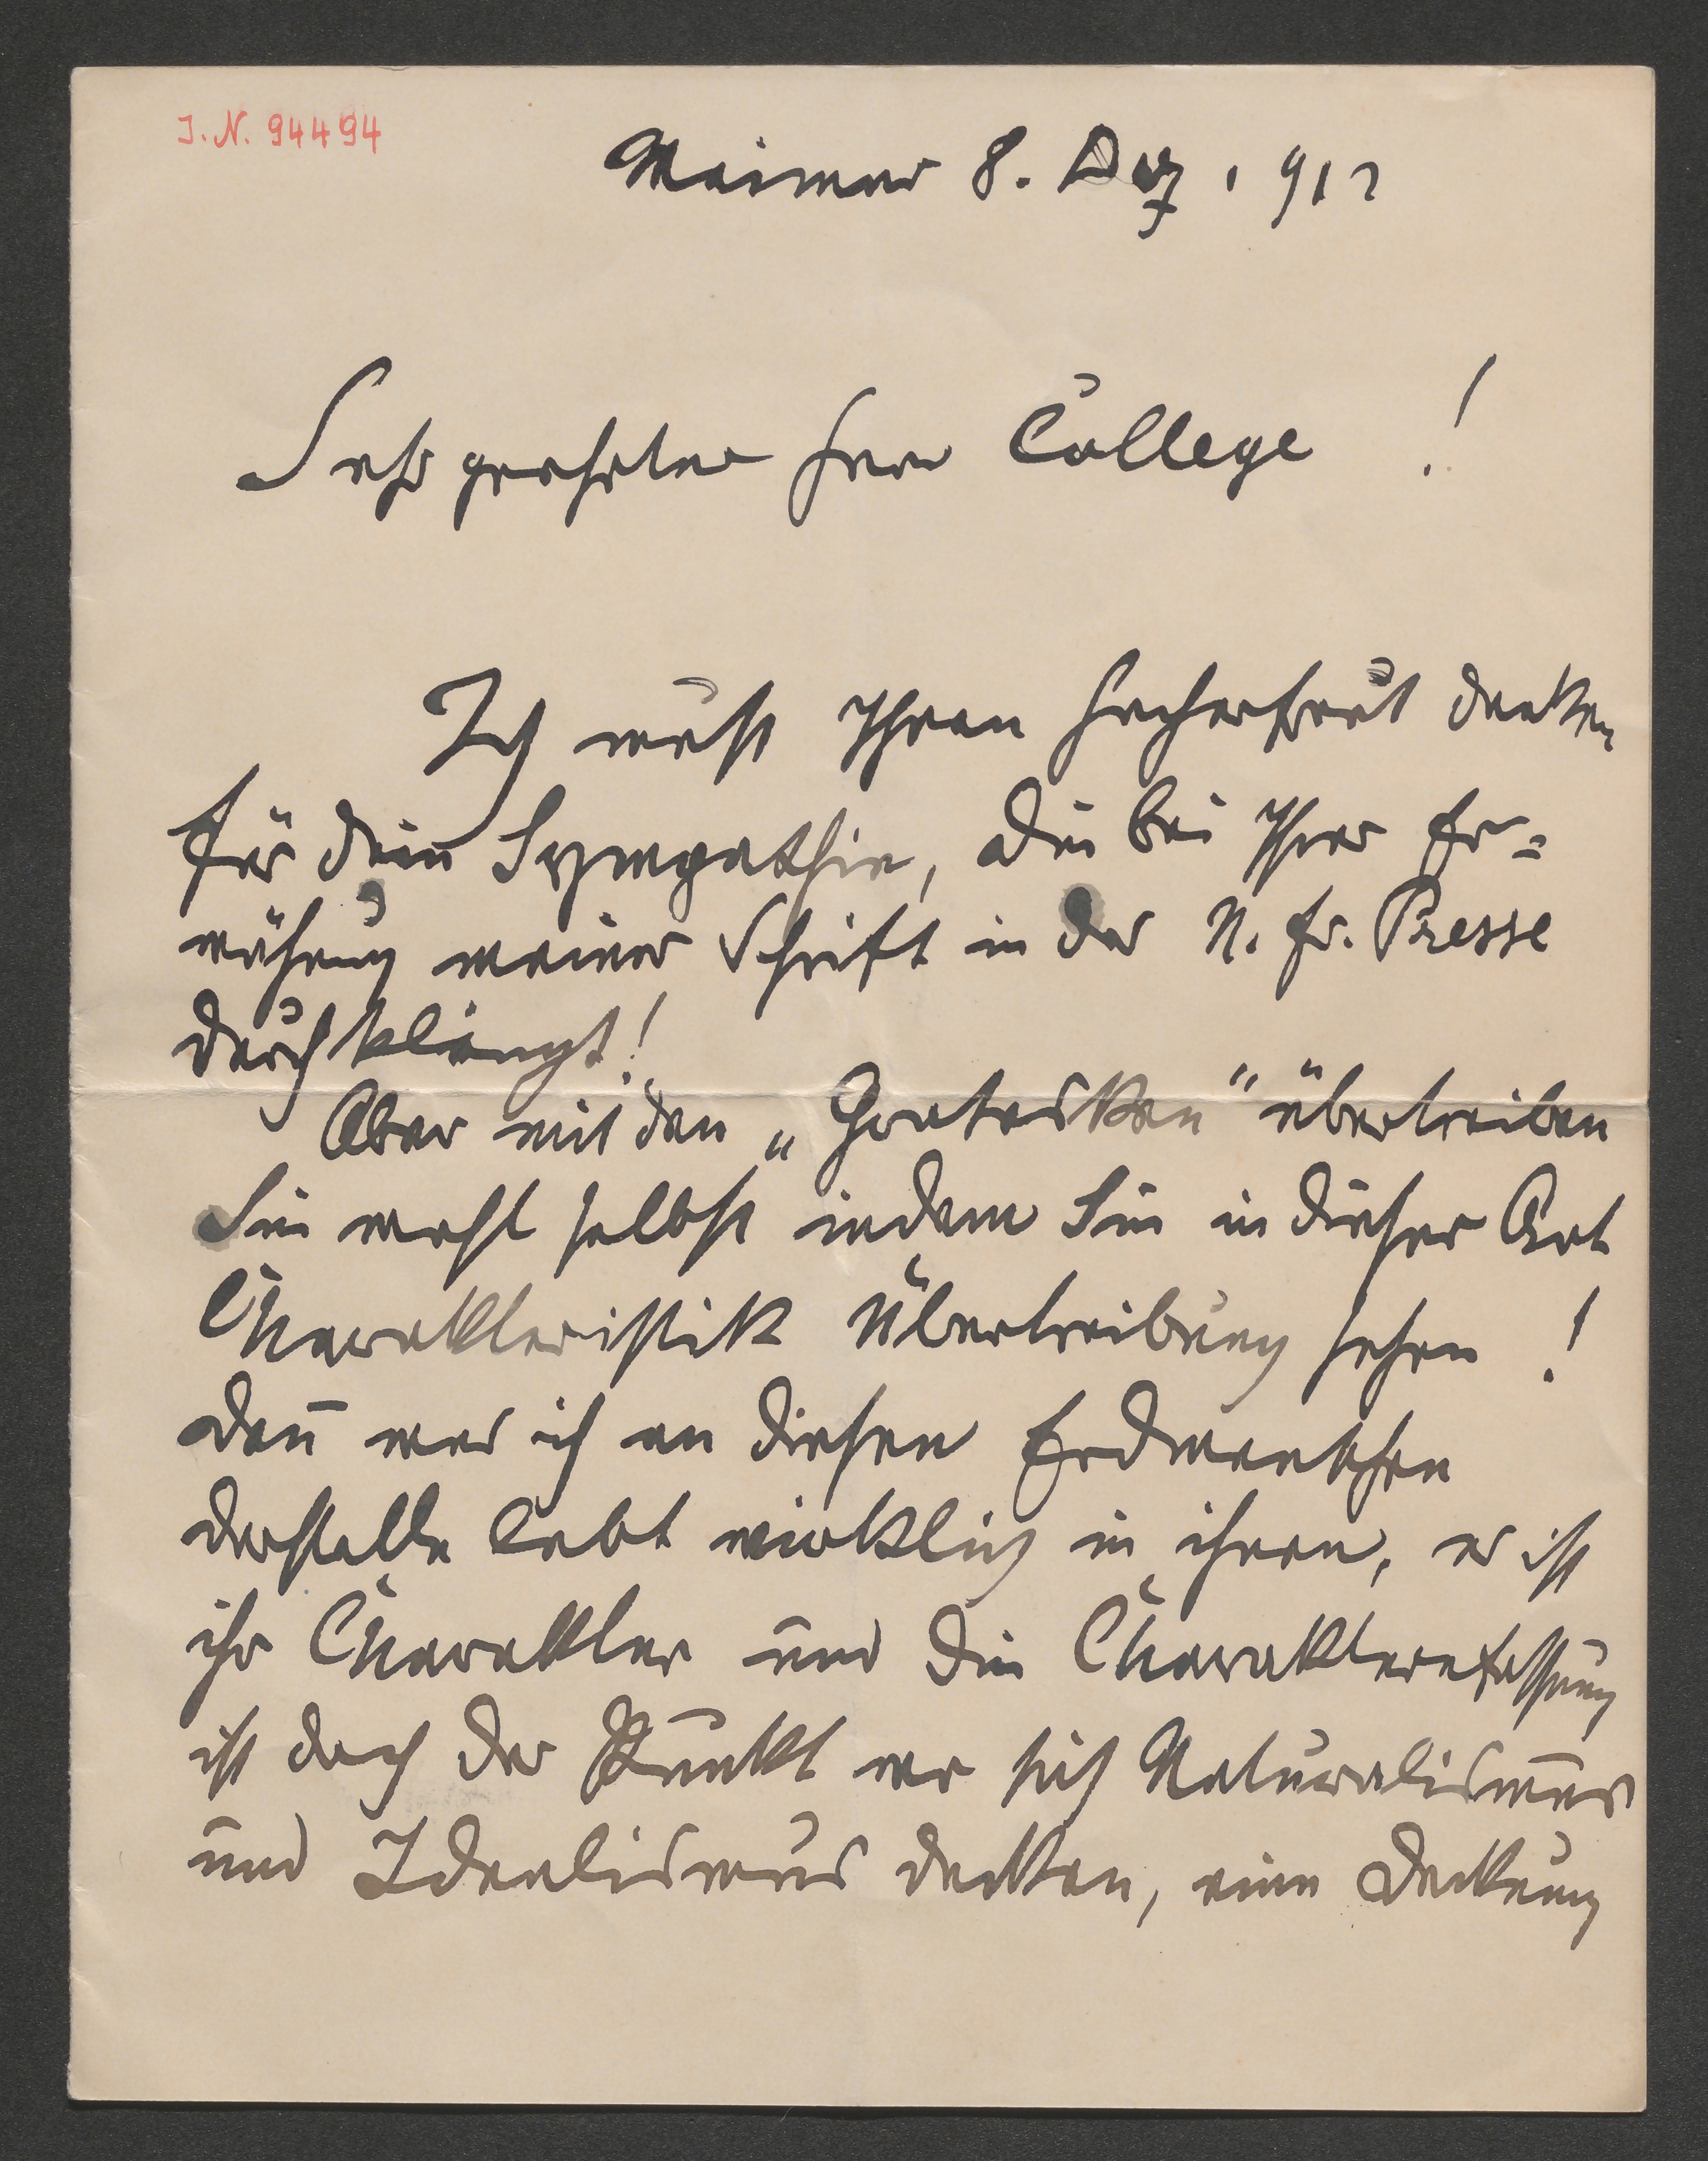 J. N. 94494
Weimar 8. Dez. 1912
Sehr geehrter Herr College !
Ich muß Ihnen hocherfreut danken
für Sympathie, die bei Ihrer Er=
wähnung meiner Schrift in der N. Fr. Presse
durchklingt!
Aber mit dem „Grotesken“ übertreiben
Sie wohl selbst indem Sie in dieser Art
Charakteristik Übertreibung sehen !
Denn was ich an diesen
darstelle lebt wirklich in ihnen, es ist
ihr Charakter und die
ist doch der Punkt wo sich Naturalismus
und Idealismus decken, eine Deckung